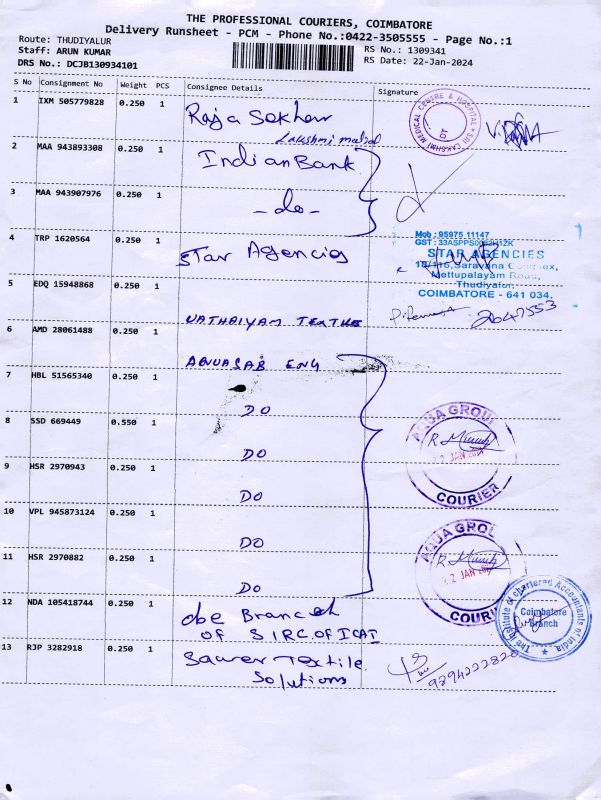 THE PROFESSIONAL COURIERS, COIMBATORE
Delivery Runsheet - PCM - Phone No.:0422-3505555 - Page No.:1
Route: THUDIYALUR
RS No.: 1309341
Staff: ARUN KUMAR
RS Date: 22-Jan-2024
DRS No.: DCJB130934101
S No Consignment No Weight PCS Consignee Details Signature
1 IXM 505779828 0.250 1 Raja Sekhar
Lakshmi medical
SRI LAKSHMI MEDICAL CENTRE & HOSPITAL
DT
2 MAA 943893308 0.250 1 Indian Bank
3 MAA 943907976 0.250 1 - do -
4 TRP 1620564 0.250 1 Star Agencies
Mob : 95975 11147
STAR AGENCIES
Mettupalayam Road,
Thudiyalur,
COIMBATORE - 641 034.
5 EDQ 15948868 0.250 1
6 AMD 28061488 0.250 1
ENG
7 HBL 51565340 0.250 1 DO
8 SSD 669449 0.550 1 DO
9 HSR 2970943 0.250 1 DO
10 VPL 945873124 0.250 1 DO
11 HSR 2970882 0.250 1 DO
AQUA GROUP
R.
22 JAN
COURIER
AQUA GROUP
R.
22 JAN
COURIER
12 NDA 105418744 0.250 1 cbe Branch
OF SIRC OF ICAI
The Institute of Chartered Accountants of India
Coimbatore
Branch
13 RJP 3282918 0.250 1 Saurer Textile
Solutions
9894222820